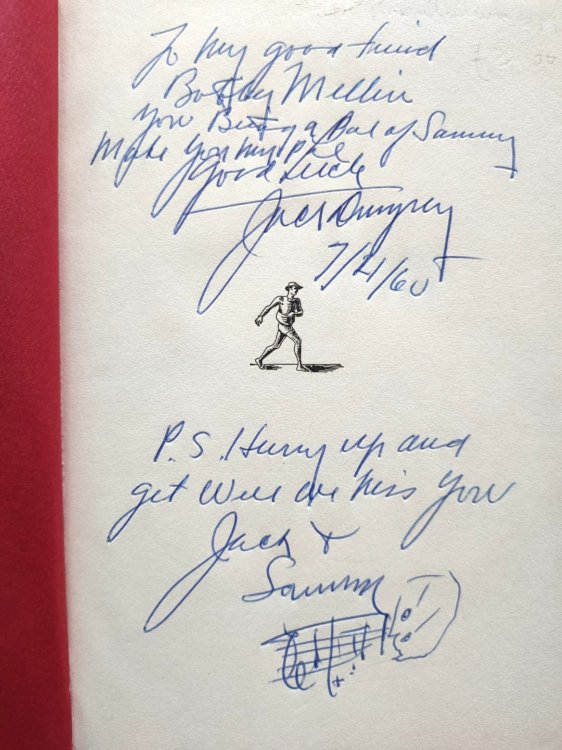 To my good friend
Bobby Mellin
You Being a Pal of Sammy
Make You my Pal
Good Luck
Jack Dempsey
7/21/60
P.S. Hurry up and
get Well we Miss You
Jack &
Sammy